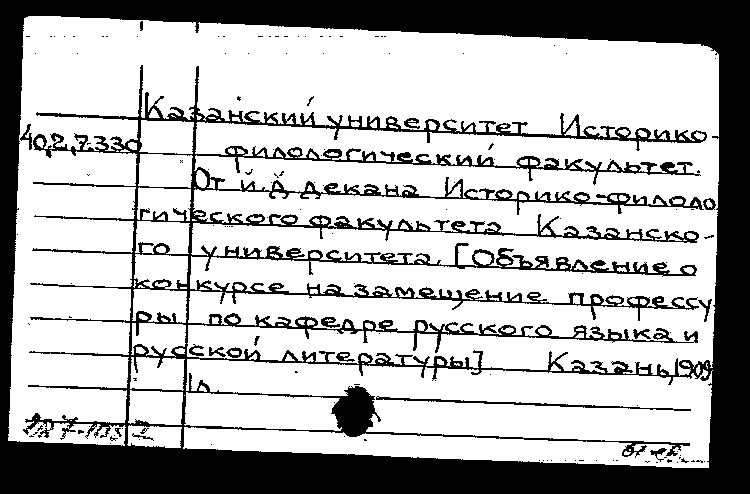 Казанский университет Историко-
40,2,7.330 филологический факультет.
От й.д декана Историко-филоло
гического факультета Казанско-
го университета. [Объявление о
конкурсе на замещение профессу
ры по кафедре русского языка и
русской литературы] Казань, 1909
1л.